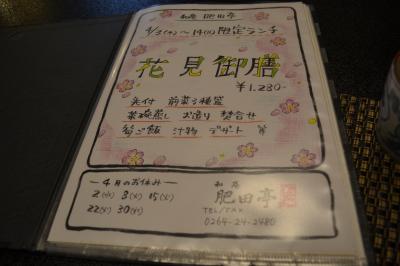 和房 肥田亭
4/3(水)〜14(日)限定ランチ
花見御膳
¥1.280-
先付 前菜3種盛
茶碗蒸し お造り 焚合せ
筍ご飯 汁物 デザート
-4月のお休み-
2(火) 8(月) 15(月)
22(月) 30(火)
肥田亭
TEL/FAX
0264-24-2480